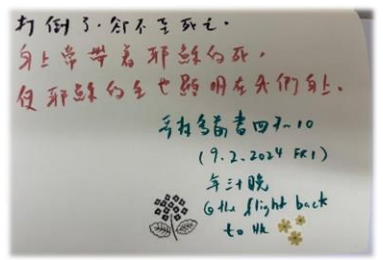 打倒了，卻不至死亡。
身上常帶着耶穌的死，
使耶穌的生也顯明在我們身上。
哥林多前書四7~10
(9.2.2024 FRI)
年三十晚
@the flight back
to HK